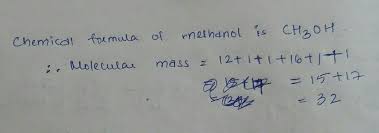 Chemical formula of methanol is CH3OH.
∴ Molecular mass = 12+1+1+16+1+1
= 15+17
= 32